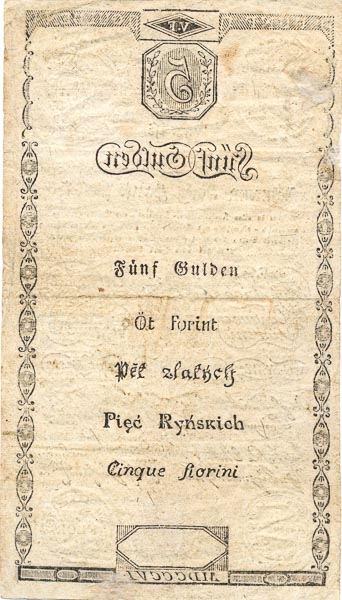 FL V
5
Fünf Gulden
Fünf Gulden
Öt forint
Pět zlatých
Pięć Ryńskich
Cinque fiorini
MDCCCVI